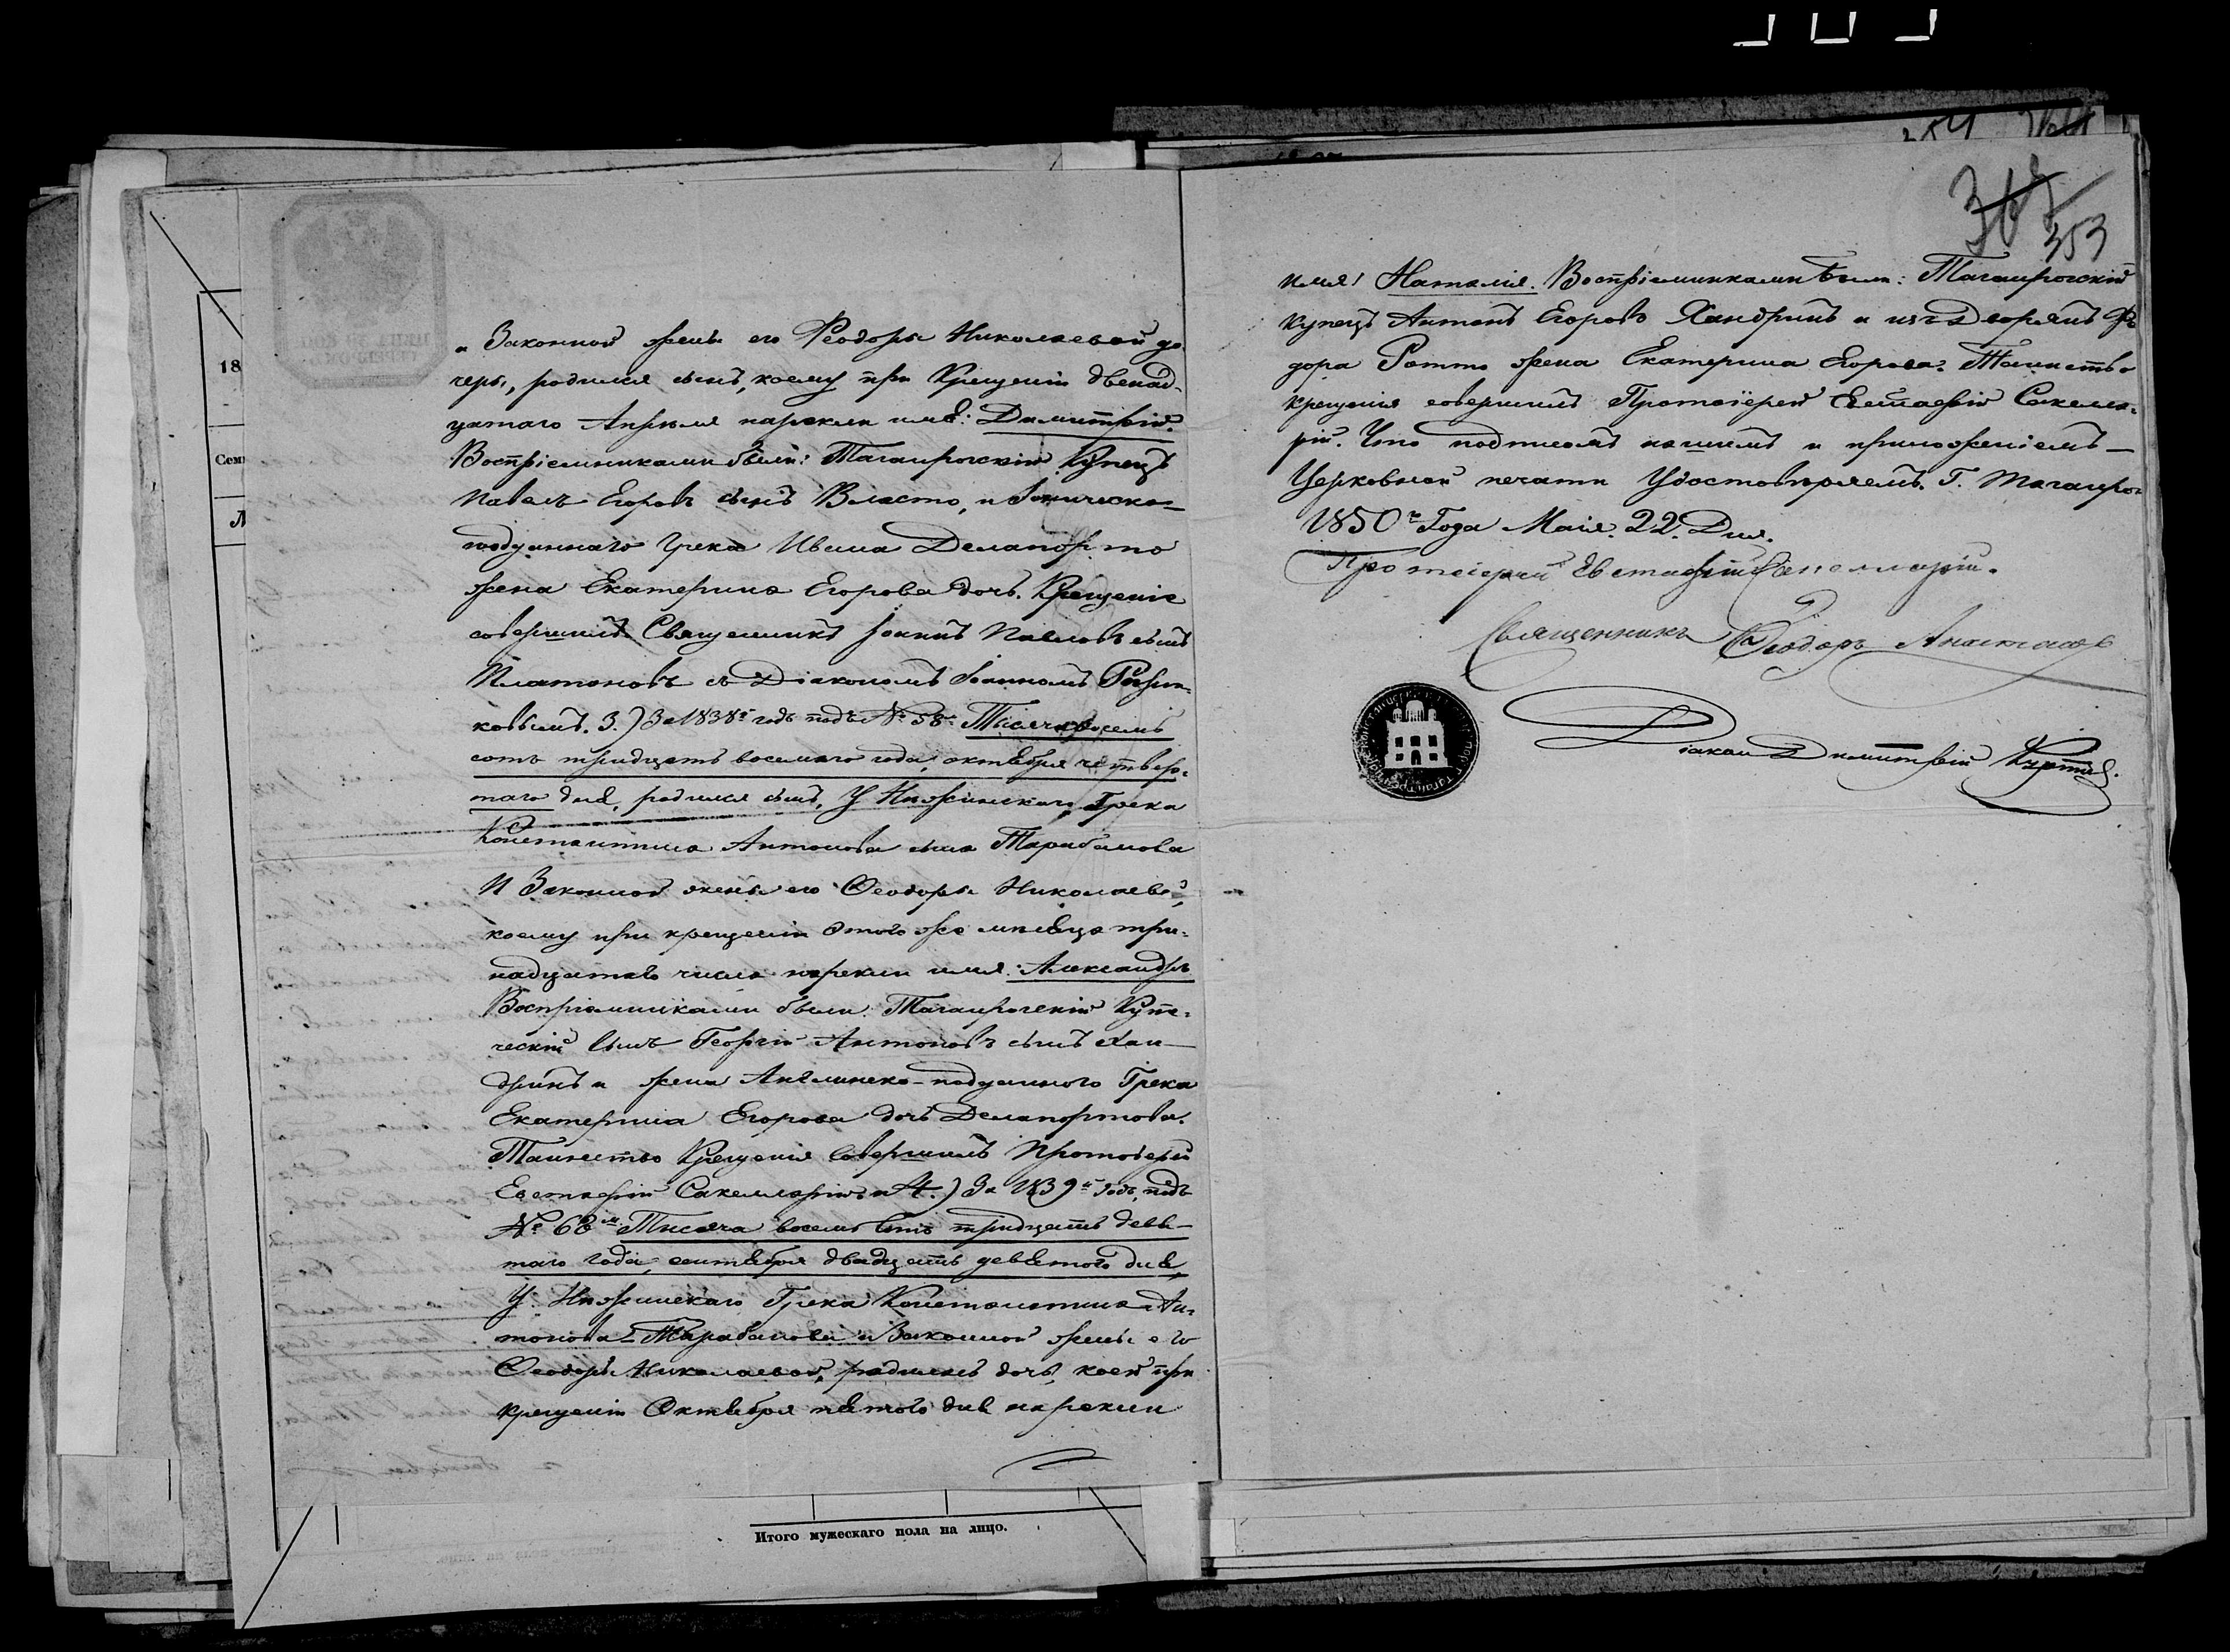 и Законной жены его Ѳеодоры Николаевой до-
чери, родился сынъ, коему при Крещеніи двенад-
цатаго Апреля нарекли имя: Димитрій.
Воспріемниками были: Таганрогскій Купецъ
Павелъ Егоровъ сынъ Власто, и Іоническо-
подданнаго Грека Ивана Делапорто
жена Екатерина Егорова дочь. Крещеніе
совершилъ Священникъ Іоаннъ Павловъ сынъ
Платоновъ съ Діакономъ Іоанномъ
ковымъ. 3.) За 1838й годъ подъ № 58м Тысяча восемь
сотъ тридцать восьмаго года, октября четвер-
таго дня, родился сынъ, У Нѣжинскаго Грека
Константина Антонова сына Тарабанова
И Законной жены его Ѳеодоры Николаевой,
коему при крещеніи этого же мѣсяца три-
надцатаго числа нарекли имя: Александръ
Воспріемниками были Таганрогскій Купе-
ческій сынъ Георгій Антоновъ сынъ Хан-
дринъ и жена Англинско-подданного Грека
Екатерина Егорова дочь Делапортова.
Таинство Крещенія совершилъ Протоіерей
Евстафій Сакелларій и 4.) За 1839й годъ, подъ
№ 68м Тысяча восемь сотъ тридцать девя-
таго года, сентября двадцать девятого дня,
У Нѣжинскаго Грека Константина Ан-
тонова Тарабанова и Законной жены его
Ѳеодоры Николаевой, родилась дочь, коей при
крещеніи Октября пятого дня нарекли
353
имя: Наталія. Воспріемниками были: Таганрогскій
купецъ Антонъ Егоровъ Хандринъ и изъ Дворянъ Ѳе-
дора Ротто жена Екатерина Егорова. Таинство
крещенія совершилъ Протоіерей Евстафій Сакелла-
рій. Что подписомъ нашимъ и приложеніемъ
Церковной печати Удостовѣряемъ. Г. Таганрог
1850го Года Маія 22 Дня.
Протоіерей Евстафій Сакелларій.
Священникъ Ѳеодоръ
Діакон Димитрій
18
Сем
Л
Итого мужескаго пола на лицо.